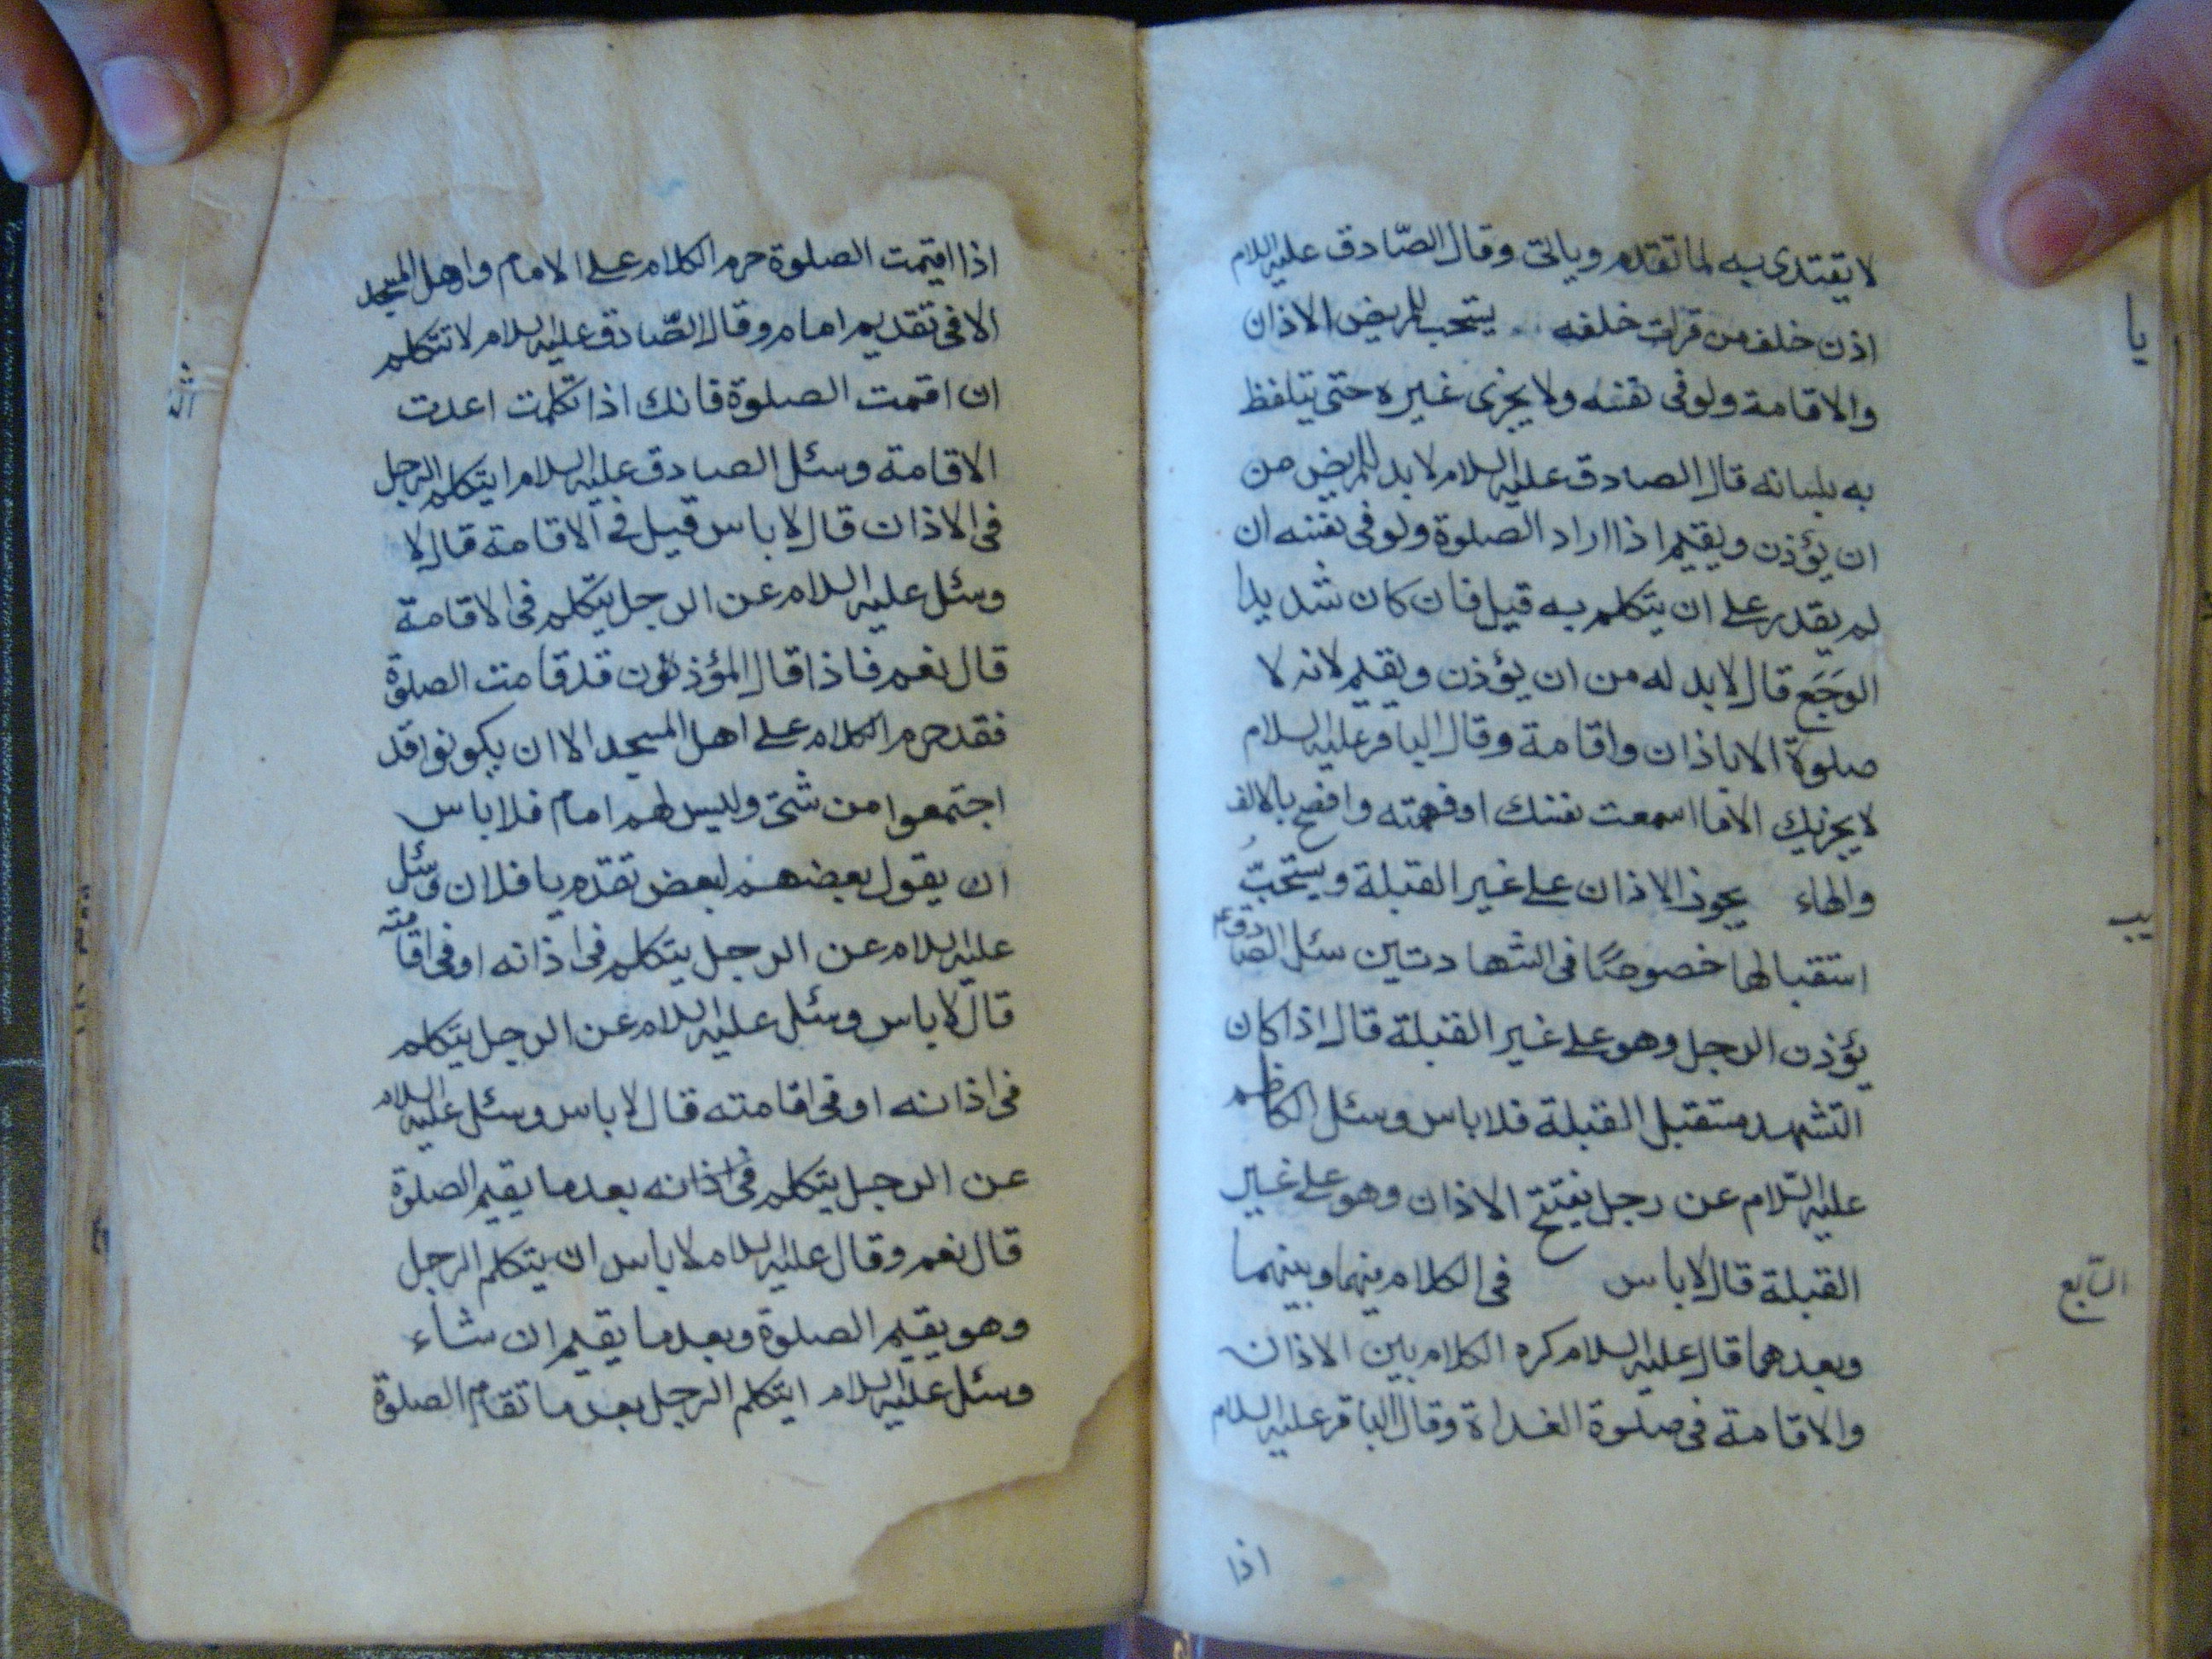 لا يقتدى به لما تقدم وياتى وقال الصّادق عليه السلام
يا
اذن خلف من قرات خلفه يستحب للمريض الاذان
والاقامة ولو فى نفسه ولا يجزى غيره حتى يتلفظ
به بلسانه قال الصادق عليه السلام لا بد للمريض من
ان يؤذن ويقيم اذا اراد الصلوة ولو فى نفسه ان
لم يقدر على ان يتكلم به قيل فان كان شديدا
الوجَع قال لا بد له من ان يؤذن ويقيم لانه لا
صلوة الا باذان واقامة وقال الباقر عليه السلام
لا يجزيك الا ما اسمعت نفسك او فهمته وافصح بالالف
والهاء يجوز الاذان على غير القبلة ويستحبّ
يب
استقبالها خصوصًا فى الشهادتين سئل الصادق ع
يؤذن الرجل وهو على غير القبلة قال اذا كان
التشهد مستقبل القبلة فلا باس وسئل الكاظم
عليه السّلام عن رجل يفتتح الاذان وهو على غير
القبلة قال لا باس فى الكلام فيهما وبينهما
السّابع
وبعدهما قال عليه السلام كره الكلام بين الاذان
والاقامة فى صلوة الغداة وقال الباقر عليه السلام
اذا
اذا اقيمت الصلوة حرم الكلام على الامام واهل المسجد
الا فى تقديم امام وقال الصّادق عليه السلام لا تتكلم
ان اقمت الصلوة فانك اذا تكلمت اعدت
الاقامة وسئل الصادق عليه السلام ايتكلم الرجل
فى الاذان قال لا باس قيل فى الاقامة قال لا
وسئل عليه السلام عن الرجل يتكلم فى الاقامة
قال نعم فاذا قال المؤذنون قد قامت الصلوة
فقد حرم الكلام على اهل المسجد الا ان يكونوا قد
اجتمعوا من شتى وليس لهم امام فلا باس
ان يقول بعضهم لبعض تقدم يا فلان وسئل
عليه السلام عن الرجل يتكلم فى اذانه او فى اقامته
قال لا باس وسئل عليه السلام عن الرجل يتكلم
فى اذانه او فى اقامته قال لا باس وسئل عليه السلام
عن الرجل يتكلم فى اذانه بعد ما يقيم الصلوة
قال نعم وقال عليه السلام لا باس ان يتكلم الرجل
وهو يقيم الصلوة وبعد ما يقيم ان شاء
وسئل عليه السلام ايتكلم الرجل بعد ما تقام الصلوة